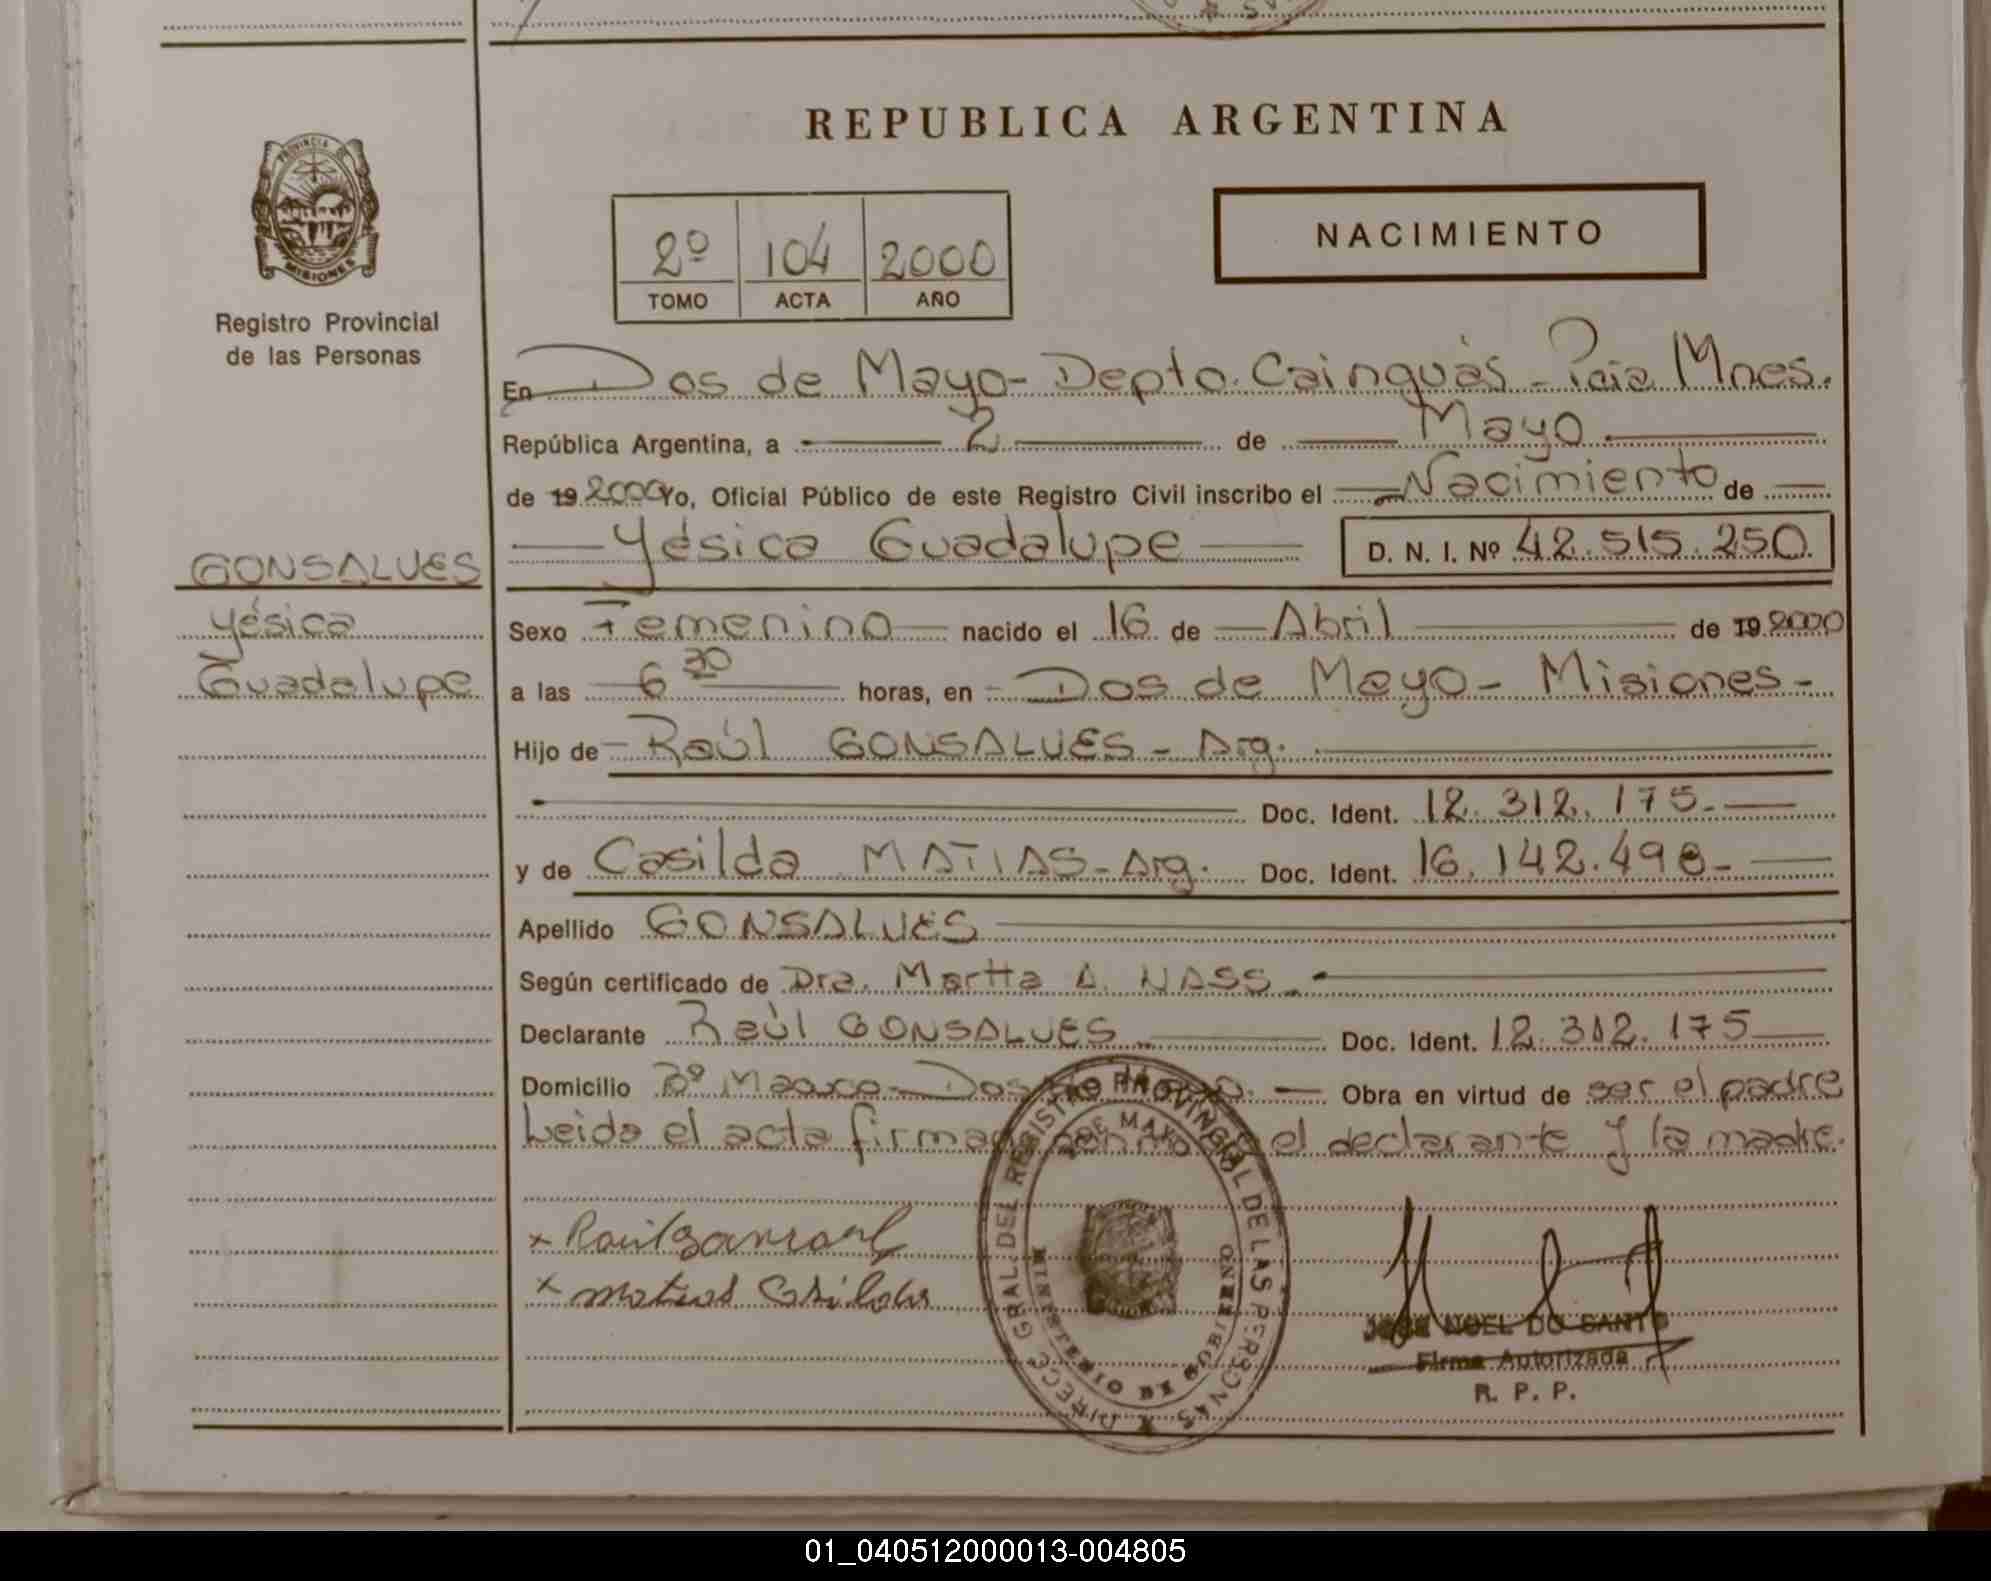 REPUBLICA ARGENTINA
PROVINCIA DE
MISIONES
Registro Provincial
de las Personas
2º 104 2000
TOMO ACTA AÑO
NACIMIENTO
En Dos de Mayo - Depto. Cainguás - Pcia Mnes.
República Argentina, a 2 de Mayo
de 19 2000 Yo, Oficial Público de este Registro Civil inscribo el Nacimiento de
Yésica Guadalupe D. N. I. Nº 42.515.250
GONSALVES
Yésica
Guadalupe
Sexo Femenino nacido el 16 de Abril de 19 2000
a las 6 30 horas, en Dos de Mayo - Misiones -
Hijo de Raúl GONSALVES - Arg.
Doc. Ident. 12.312.175.
y de Casilda MATIAS - Arg. Doc. Ident. 16.142.498-
Apellido GONSALVES
Según certificado de Dra. Martta A. NASS
Declarante Raúl GONSALVES Doc. Ident. 12.312.175
Domicilio Bº Dos de Mayo. Obra en virtud de ser el padre
Leida el acta firman el declarante y la madre.
x Raul
x Matias Casilda
DIRECC. GRAL. DEL REGISTRO PROVINCIAL DE LAS PERSONAS
2 DE MAYO
MINISTERIO DE GOBIERNO
JOSE NOEL DO SANTO
Firma Autorizada
R. P. P.
01_040512000013-004805